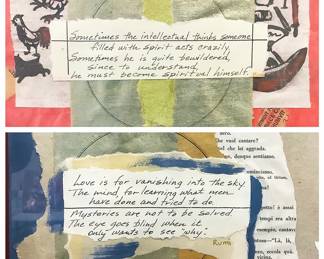 Sometimes the intellectual thinks someone
filled with spirit acts crazily.
Sometimes he is quite bewildered,
since to understand,
he must become spiritual himself.
Love is for vanishing into the sky.
The mind, for learning what men
have done and tried to do.
Mysteries are not to be solved.
The eye goes blind when it
only wants to see "why".
Rumi
nero.
Che vuol cantare?
quel che lei aggrada.
dunque, sentiamo.